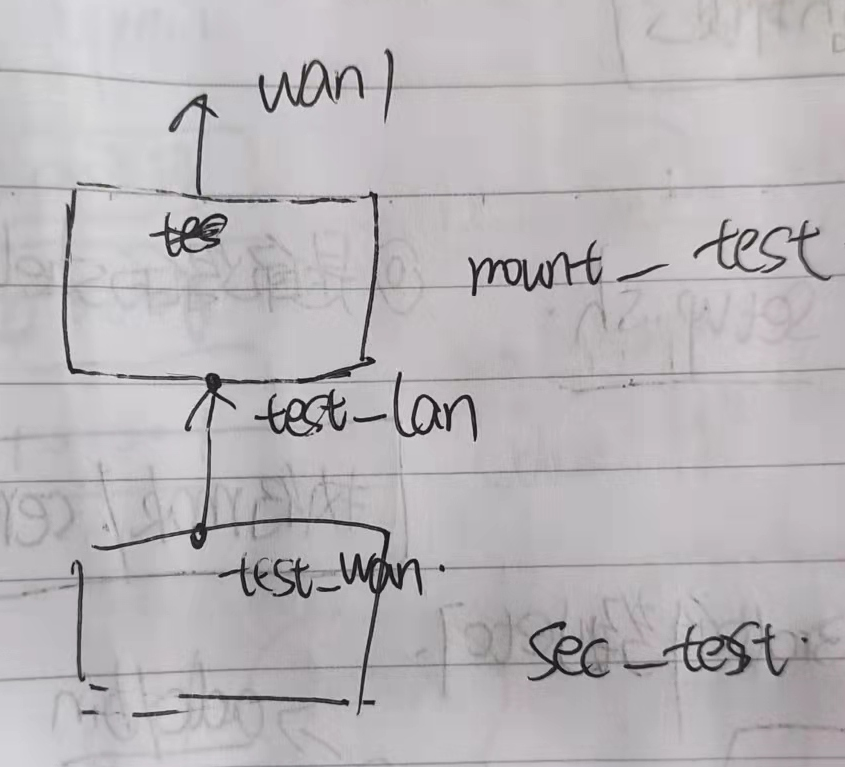 wan1
mount_test
test-lan
test_wan.
sec_test.